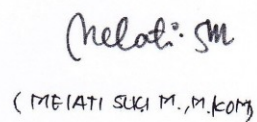 Melati. SM
( MELATI SUCI M., M.KOM)